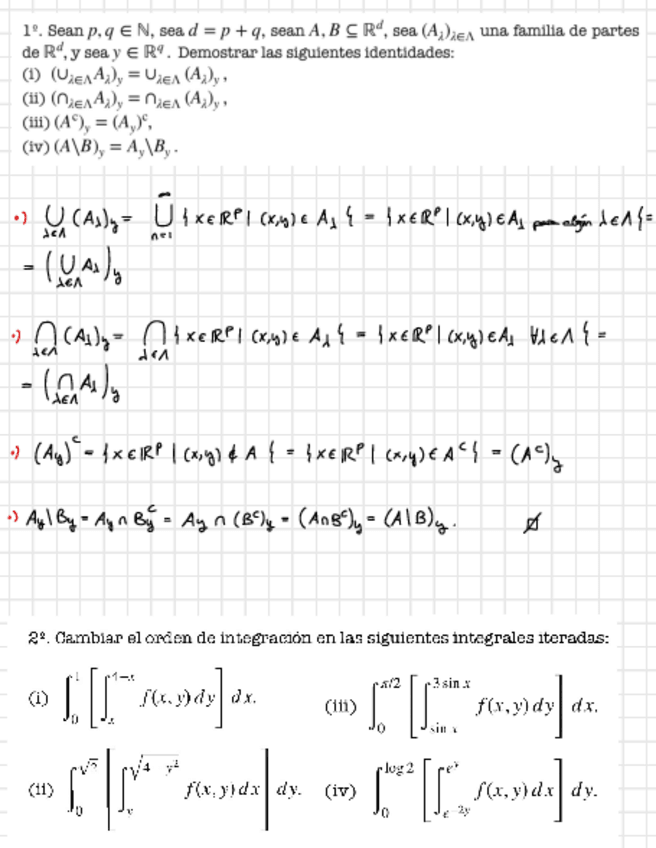 1º. Sean p, q ∈ ℕ, sea d = p + q, sean A, B ⊆ ℝᵈ, sea (A_λ)_{λ∈Λ} una familia de partes
de ℝᵈ, y sea y ∈ ℝ^q. Demostrar las siguientes identidades:
(i) (∪_{λ∈Λ} A_λ)_y = ∪_{λ∈Λ} (A_λ)_y,
(ii) (∩_{λ∈Λ} A_λ)_y = ∩_{λ∈Λ} (A_λ)_y,
(iii) (Aᶜ)_y = (A_y)ᶜ,
(iv) (A\B)_y = A_y\B_y.
•) ∪_{λ∈Λ} (A_λ)_y = ∪_{n=1}^{∞} {x ∈ ℝᵖ | (x,y) ∈ A_λ} = {x ∈ ℝᵖ | (x,y) ∈ A_λ para algún λ ∈ Λ} =
= (∪_{λ∈Λ} A_λ)_y
•) ∩_{λ∈Λ} (A_λ)_y = ∩_{λ∈Λ} {x ∈ ℝᵖ | (x,y) ∈ A_λ} = {x ∈ ℝᵖ | (x,y) ∈ A_λ ∀λ ∈ Λ} =
= (∩_{λ∈Λ} A_λ)_y
•) (A_y)ᶜ = {x ∈ ℝᵖ | (x,y) ∉ A} = {x ∈ ℝᵖ | (x,y) ∈ Aᶜ} = (Aᶜ)_y
•) A_y\B_y = A_y ∩ B_yᶜ = A_y ∩ (Bᶜ)_y = (A∩Bᶜ)_y = (A\B)_y.
2º. Cambiar el orden de integración en las siguientes integrales iteradas:
(i) ∫_0^1 [∫_x^{4−x} f(x, y) dy] dx. (iii) ∫_0^{π/2} [∫_{sin x}^{3 sin x} f(x, y) dy] dx.
(ii) ∫_0 [∫_y^{√(4 y²)} f(x, y) dx] dy. (iv) ∫_0^{log 2} [∫_{e^{2y}} f(x, y) dx] dy.